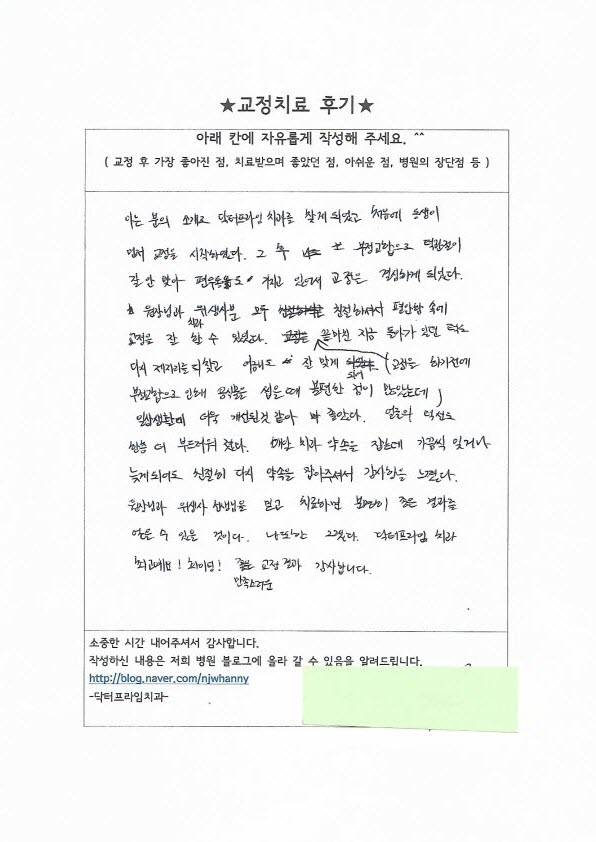 ★교정치료 후기★
아래 칸에 자유롭게 작성해 주세요. ^^
( 교정 후 가장 좋아진 점, 치료받으며 좋았던 점, 아쉬운 점, 병원의 장단점 등 )
아는 분의 소개로 닥터프라임 치과를 찾게 되었고 처음에 동생이
먼저 교정을 시작하였다. 그 후 부정교합으로 턱관절이
잘 안 맞아 가지고 있어서 교정은 결심하게 되었다.
원장님과 위생사분 모두 친절하셔서 편안함 속에
치과
교정을 잘 할 수 있었다. 끝마친 지금 돌아가 있던 턱도
다시 제자리를 되찾고 이해도 잘 맞게 (교정은 하기전에
되어
부정교합으로 인해 음식물을 씹을 때 불편한 점이 많았는데)
일상생활에 더욱 개선된것 같아 좋았다. 얼굴의 턱선도
한층 더 부드러워 졌다. 매번 치과 약속을 잡는데 가끔씩 잊거나
늦게되어도 친절히 다시 약속을 잡아주셔서 감사함을 느꼈다.
원장님과 위생사 선생님을 믿고 치료하면 분명히 좋은 결과를
얻을 수 있을 것이다. 나또한 그랬다. 닥터프라임 치과
최고예요! 화이팅! 교정 결과 감사합니다.
만족스러운
소중한 시간 내어주셔서 감사합니다.
작성하신 내용은 저희 병원 블로그에 올라 갈 수 있음을 알려드립니다.
http://blog.naver.com/njwhanny
-닥터프라임치과-